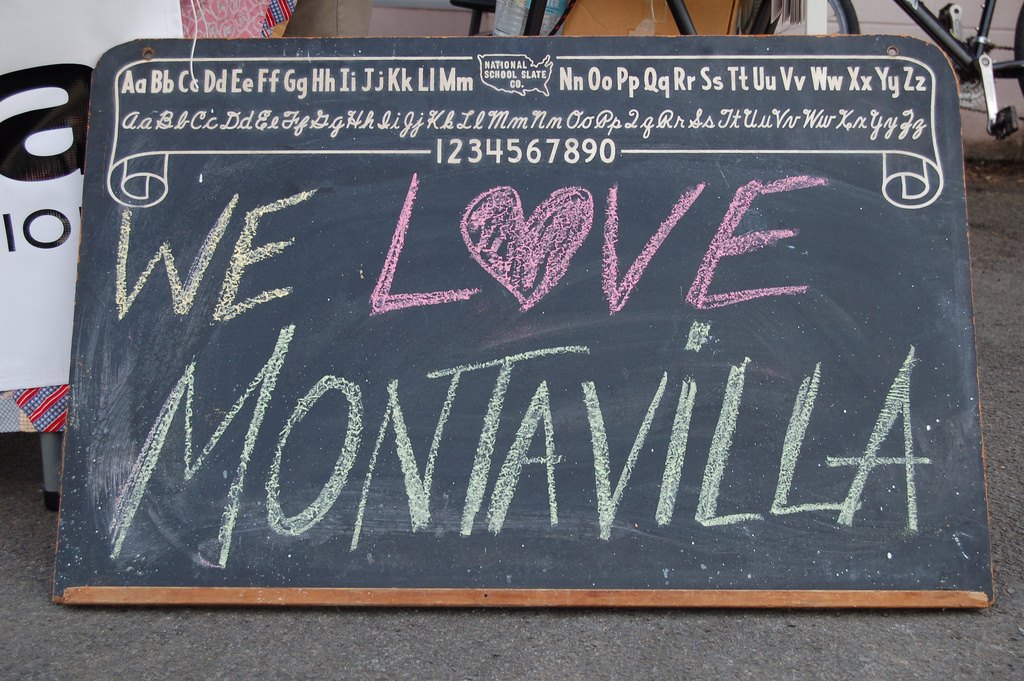 Aa Bb Cc Dd Ee Ff Gg Hh Ii Jj Kk Ll Mm NATIONAL SCHOOL SLATE CO. Nn Oo Pp Qq Rr Ss Tt Uu Vv Ww Xx Yy Zz
Aa Bb Cc Dd Ee Ff Gg Hh Ii Jj Kk Ll Mm Nn Oo Pp Qq Rr Ss Tt Uu Vv Ww Xx Yy Zz
1234567890
WE LOVE
MONTAVILLA